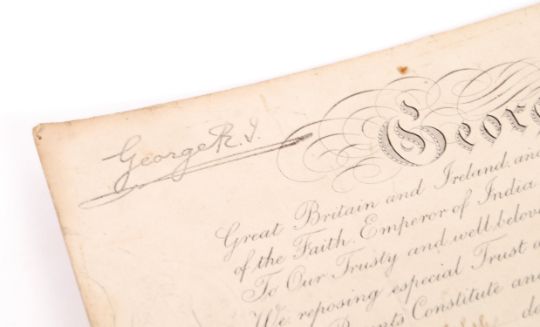 George R. I.
Georg
Great Britain and Ireland and
of the Faith, Emperor of India
To Our Trusty and well belov
We reposing especial Trust a
Constitute and